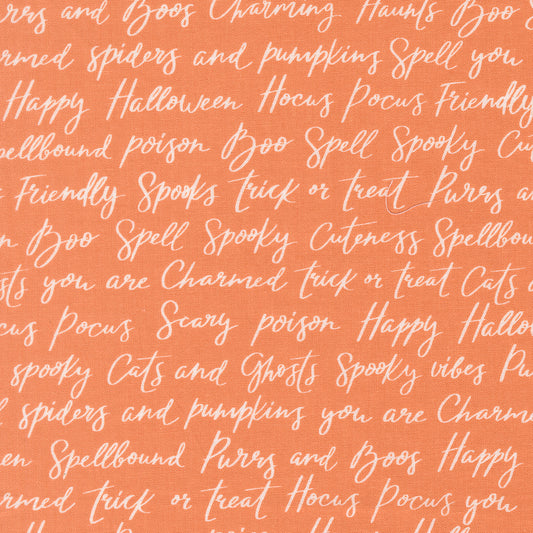 Purrs and Boos Charming Haunts Boo
Charmed spiders and pumpkins Spell you
Happy Halloween Hocus Pocus Friendly
Spellbound poison Boo Spell Spooky Cuteness
Friendly Spooks trick or treat Purrs and
Boo Spell Spooky Cuteness Spellbound
Ghosts you are Charmed trick or treat Cats
Hocus Pocus Scary poison Happy Halloween
spooky Cats and Ghosts Spooky vibes Purrs
spiders and pumpkins you are Charmed
Halloween Spellbound Purrs and Boos Happy
Charmed trick or treat Hocus Pocus you